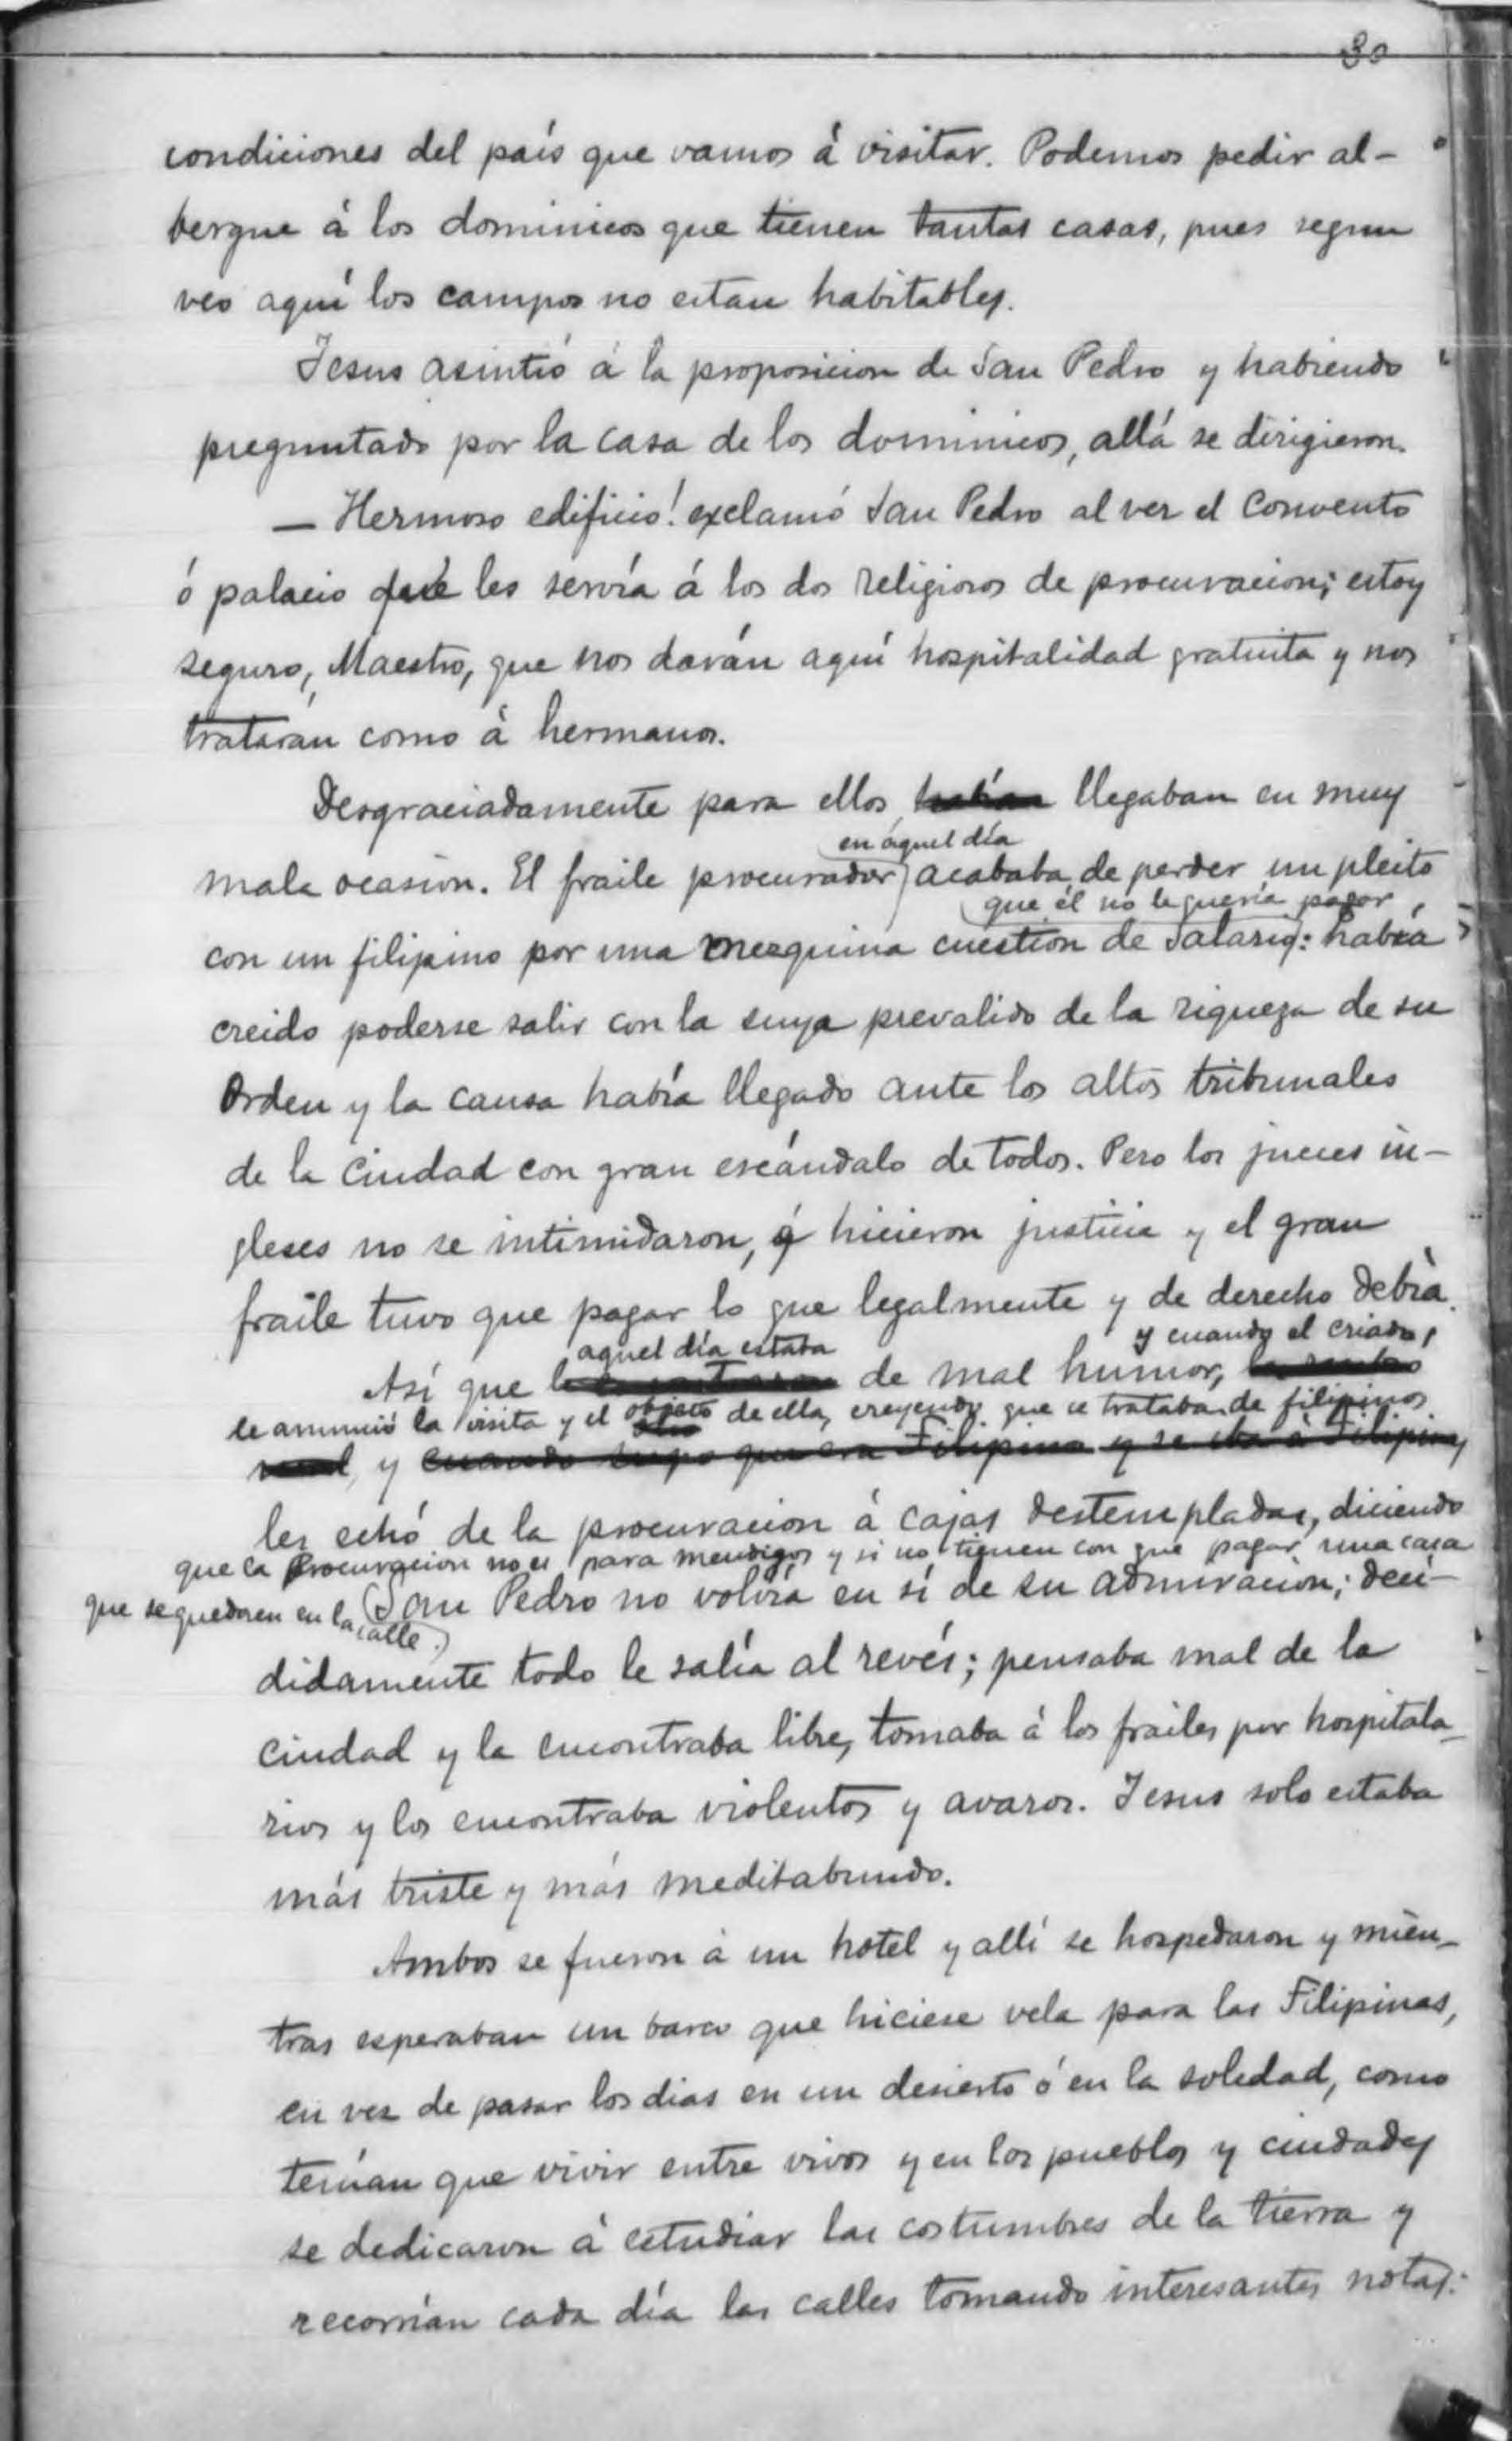 30
condiciones del país que vamos á visitar. Podemos pedir al-
bergue á los dominicos que tienen tantas casas, pues segun
veo aquí los campos no estan habitables.
Jesus asintió á la proposicion de San Pedro y habiendo
preguntado por la casa de los dominicos, allá se dirigieron.
— Hermoso edificio! exclamó San Pedro al ver el Convento
ó palacio que les servía á los dos religiosos de procuracion; estoy
seguro, Maestro, que nos darán aquí hospitalidad gratuita y nos
tratarán como á hermanos.
Desgraciadamente para ellos, habían llegaban en muy
en aquel día
mala ocasion. El fraile procurador acababa de perder un pleito
que él no le queria pagar
con un filipino por una mezquina cuestion de salario: había
creido poderse salir con la suya prevalido de la riqueza de su
Orden y la causa había llegado ante los altos tribunales
de la Ciudad con gran escándalo de todos. Pero los jueces in-
gleses no se intimidaron, é hicieron justicia y el gran
fraile tuvo que pagar lo que legalmente y de derecho debía.
aquel día estaba y cuando el criado,
Así que de mal humor,
le anunció la visita y el objeto de ella, creyendo que se trataba de filipinos
y cuando supo que era Filipino y se iba á Filipinas
les echó de la procuracion á cajas destempladas, diciendo
que la Procuracion no es para mendigos y si no tienen con que pagar una casa
que se quedasen en la calle.
San Pedro no volvía en sí de su admiracion; deci-
didamente todo le salía al revés; pensaba mal de la
ciudad y la encontraba libre, tomaba á los frailes por hospitala-
rios y los encontraba violentos y avaros. Jesus solo estaba
más triste y más meditabundo.
Ambos se fueron á un hotel y allí se hospedaron y mien-
tras esperaban un barco que hiciese vela para las Filipinas,
en vez de pasar los dias en un desierto ó en la soledad, como
tenían que vivir entre vivos y en los pueblos y ciudades
se dedicaron á estudiar las costumbres de la tierra y
recorrían cada día las calles tomando interesantes notas.